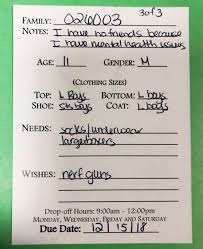 3 of 3
FAMILY: 026003
NOTES: I have no friends because
I have mental health issues
AGE: 11 GENDER: M
(CLOTHING SIZES)
TOP: L Boys BOTTOM: L boys
SHOE: 5k boys COAT: L boys
NEEDS: socks/underwear
large boxers
WISHES: nerf guns
Drop-off Hours: 9:00am - 12:00pm
MONDAY, WEDNESDAY, FRIDAY AND SATURDAY
DUE DATE: 12/15/18